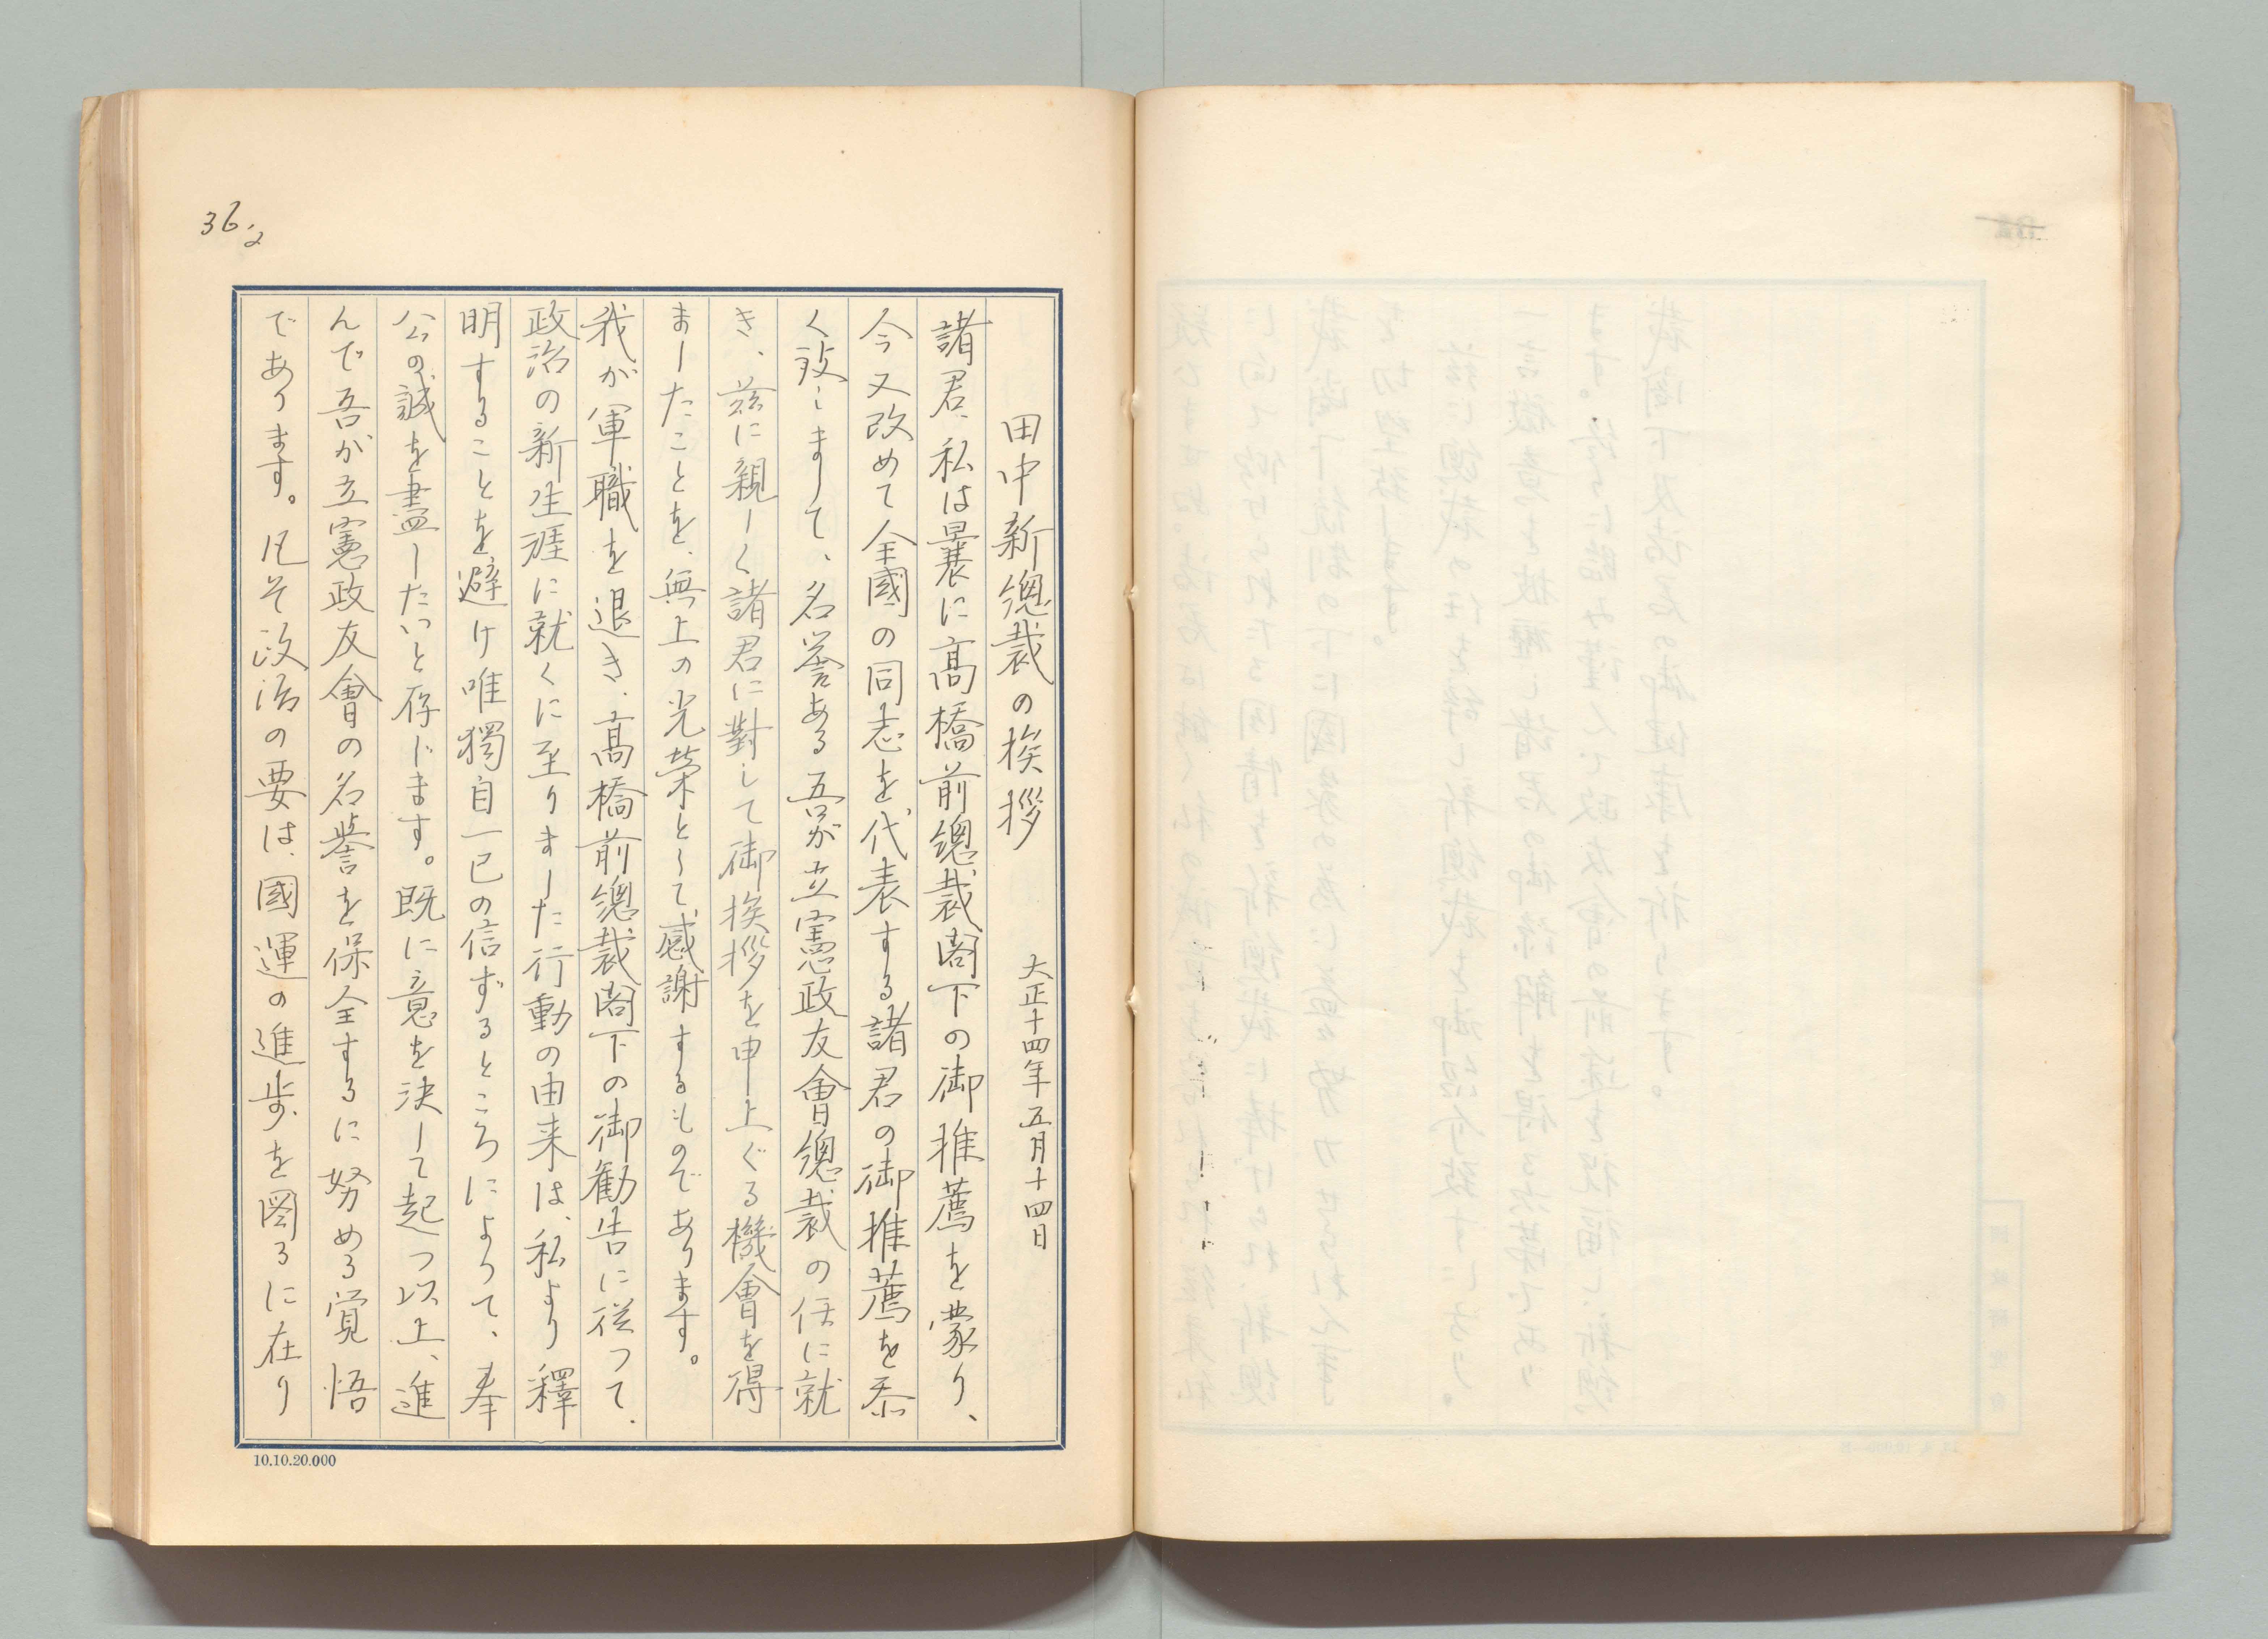 36.2
田中新總裁の挨拶　大正十四年五月十四日
諸君、私は曩に髙橋前總裁閣下の御推薦を蒙り、
今又改めて全國の同志を代表する諸君の御推薦を忝
く致しまして、名誉ある吾が立憲政友會總裁の任に就
き、茲に親しく諸君に對して御挨拶を申し上ぐる機會を得
ましたことを、無上の光栄として感謝するものであります。
我が軍職を退き、髙橋前總裁閣下の御勧告に従つて、
政治の新生涯に就くに至りました行動の由来は、私より釋
明することを避け唯獨自一己の信ずるところによつて、奉
公の誠を盡したいと存じます。既に意を決して起つ以上、進
んで吾が立憲政友會の名誉を保全するに努める覚悟
であります。凡そ政治の要は、國運の進歩を図るに在り
10.10.20.000